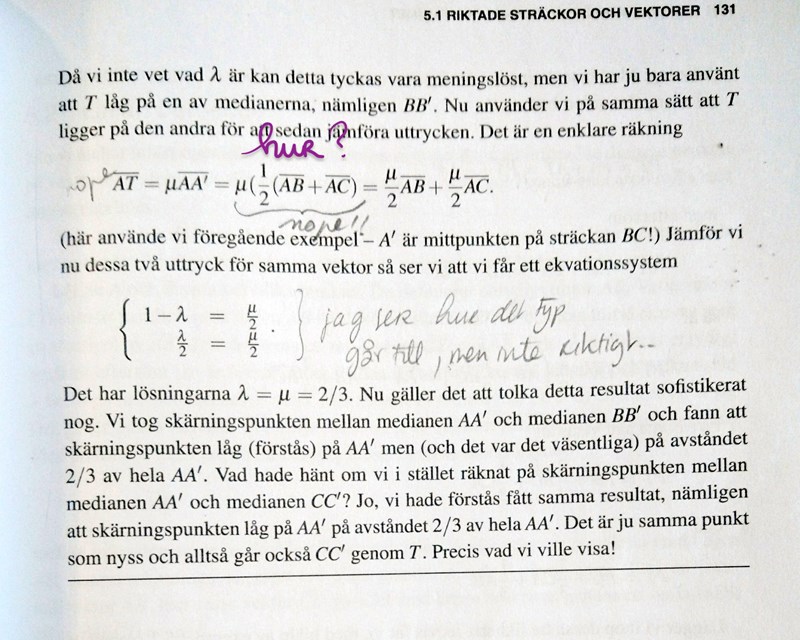 5.1 RIKTADE STRÄCKOR OCH VEKTORER 131
Då vi inte vet vad λ är kan detta tyckas vara meningslöst, men vi har ju bara använt
att T låg på en av medianerna, nämligen BB′. Nu använder vi på samma sätt att T
ligger på den andra för att sedan jämföra uttrycken. Det är en enklare räkning
hur?
nope AT = μAA′ = μ(1/2(AB + AC) = μ/2 AB + μ/2 AC.
nope!!
(här använde vi föregående exempel – A′ är mittpunkten på sträckan BC!) Jämför vi
nu dessa två uttryck för samma vektor så ser vi att vi får ett ekvationssystem
1 − λ = μ/2
λ/2 = μ/2 .
jag ser hur det typ
går till, men inte riktigt..
Det har lösningarna λ = μ = 2/3. Nu gäller det att tolka detta resultat sofistikerat
nog. Vi tog skärningspunkten mellan medianen AA′ och medianen BB′ och fann att
skärningspunkten låg (förstås) på AA′ men (och det var det väsentliga) på avståndet
2/3 av hela AA′. Vad hade hänt om vi i stället räknat på skärningspunkten mellan
medianen AA′ och medianen CC′? Jo, vi hade förstås fått samma resultat, nämligen
att skärningspunkten låg på AA′ på avståndet 2/3 av hela AA′. Det är ju samma punkt
som nyss och alltså går också CC′ genom T. Precis vad vi ville visa!